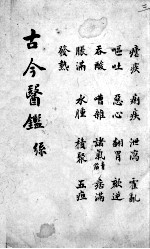 三
瘧疾 痢疾 泄瀉 霍亂
嘔吐 惡心 翻胃 欬逆
吞酸 嘈雜 諸氣 痞滿
脹滿 水腫 積聚 五疸
發熱
古今醫鑑 絲